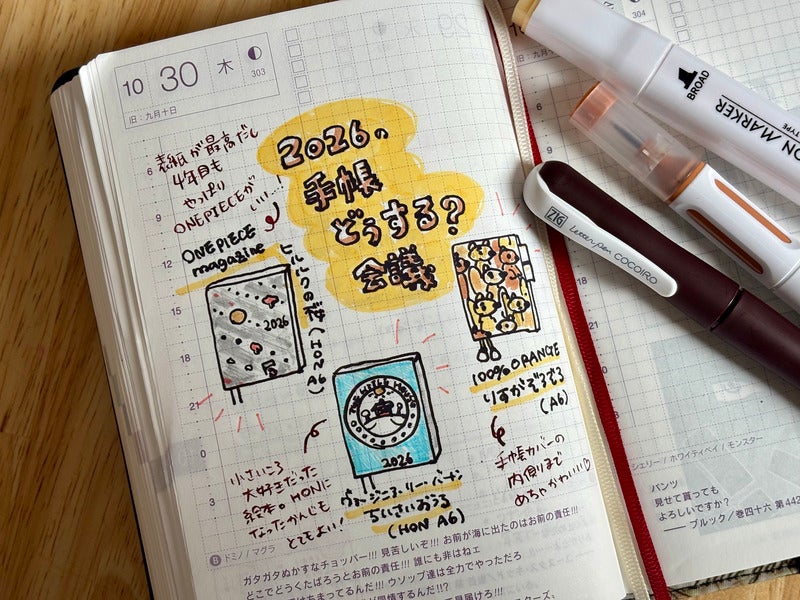 10 30 木
303
旧:九月十日
2026の
手帳
どうする?
会議
表紙が最高だし
4年目も
やっぱり
ONEPIECEが
いい…
ONEPIECE
magazine
ヒルルクの桜(HON A6)
2026
THE LITTLE HOUSE
2026
小さいころ
大好きだった
絵本。HONに
なったかんじも
とてもよい!
ヴァージニア・リー・バートン
ちいさいおうち
(HON A6)
100% ORANGE
りすがぞろぞろ
(A6)
手帳カバーの
内側まで
めちゃかわいい♡
6
9
12
15
18
21
0
3
ドミノ/マグラ
ガタガタぬかすなチョッパー!!! 見苦しいぞ!!! お前が海に出たのはお前の責任!!!
どこでどうくたばろうとお前の責任!!! 誰にも非はねェ
ウソップ達は全力でやっただろ
304
旧:九月十
シェリー/ホワイティベイ/モンスター
パンツ
見せて貰っても
よろしいですか?
── ブルック/巻四十六 第442
BROAD
ON MARKER
TYPE
ZIG
Letterpen COCOIRO